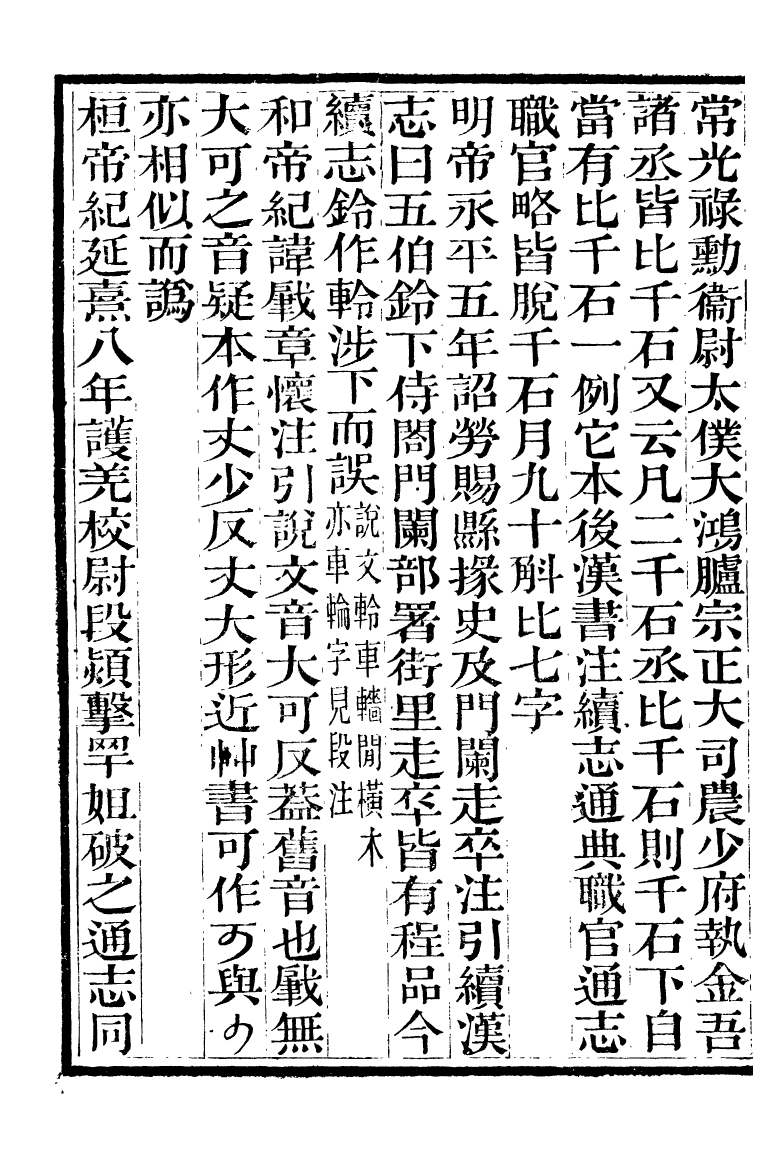 常光祿勳衞尉太僕大鴻臚宗正大司農少府執金吾
諸丞皆比千石又云凡二千石丞比千石則千石下自
當有比千石一例它本後漢書注續志通典職官通志
職官略皆脫千石月九十斛比七字
明帝永平五年詔勞賜縣掾史及門闌走卒注引續漢
志曰五伯鈴下侍閤門闌部署街里走卒皆有程品今
續志鈴作軨涉下而誤說文軨車轖閒橫木亦車輪字見段注
和帝紀諱肈章懷注引說文音大可反葢舊音也肈無
大可之音疑本作丈少反丈大形近艸書可作可與少
亦相似而譌
桓帝紀延熹八年護羌校尉段熲擊罕姐破之通志同